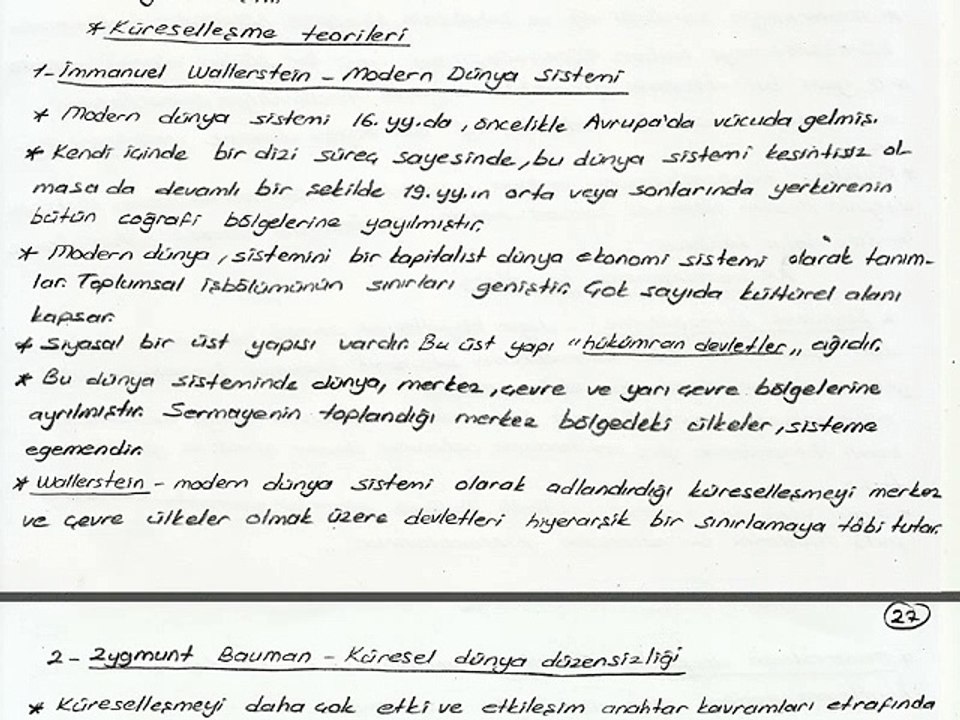 * Küreselleşme teorileri
1- İmmanuel Wallerstein - Modern Dünya Sistemi
* Modern dünya sistemi 16. yy.da, öncelikle Avrupa'da vücuda gelmiş.
* Kendi içinde bir dizi süreç sayesinde, bu dünya sistemi kesintisiz ol-
masa da devamlı bir şekilde 19.yy.ın orta veya sonlarında yerkürenin
bütün coğrafi bölgelerine yayılmıştır.
* Modern dünya, sistemini bir kapitalist dünya ekonomi sistemi olarak tanım-
lar. Toplumsal işbölümünün sınırları geniştir. Çok sayıda kültürel alanı
kapsar.
* Siyasal bir üst yapısı vardır. Bu üst yapı "hükümran devletler" ağıdır.
* Bu dünya sisteminde dünya, merkez, çevre ve yarı çevre bölgelerine
ayrılmıştır. Sermayenin toplandığı merkez bölgedeki ülkeler, sisteme
egemendir.
* Wallerstein - modern dünya sistemi olarak adlandırdığı küreselleşmeyi merkez
ve çevre ülkeler olmak üzere devletleri hiyerarşik bir sınırlamaya tâbi tutar.
27
2- Zygmunt Bauman - Küresel dünya düzensizliği
* Küreselleşmeyi daha çok etki ve etkileşim anahtar kavramları etrafında